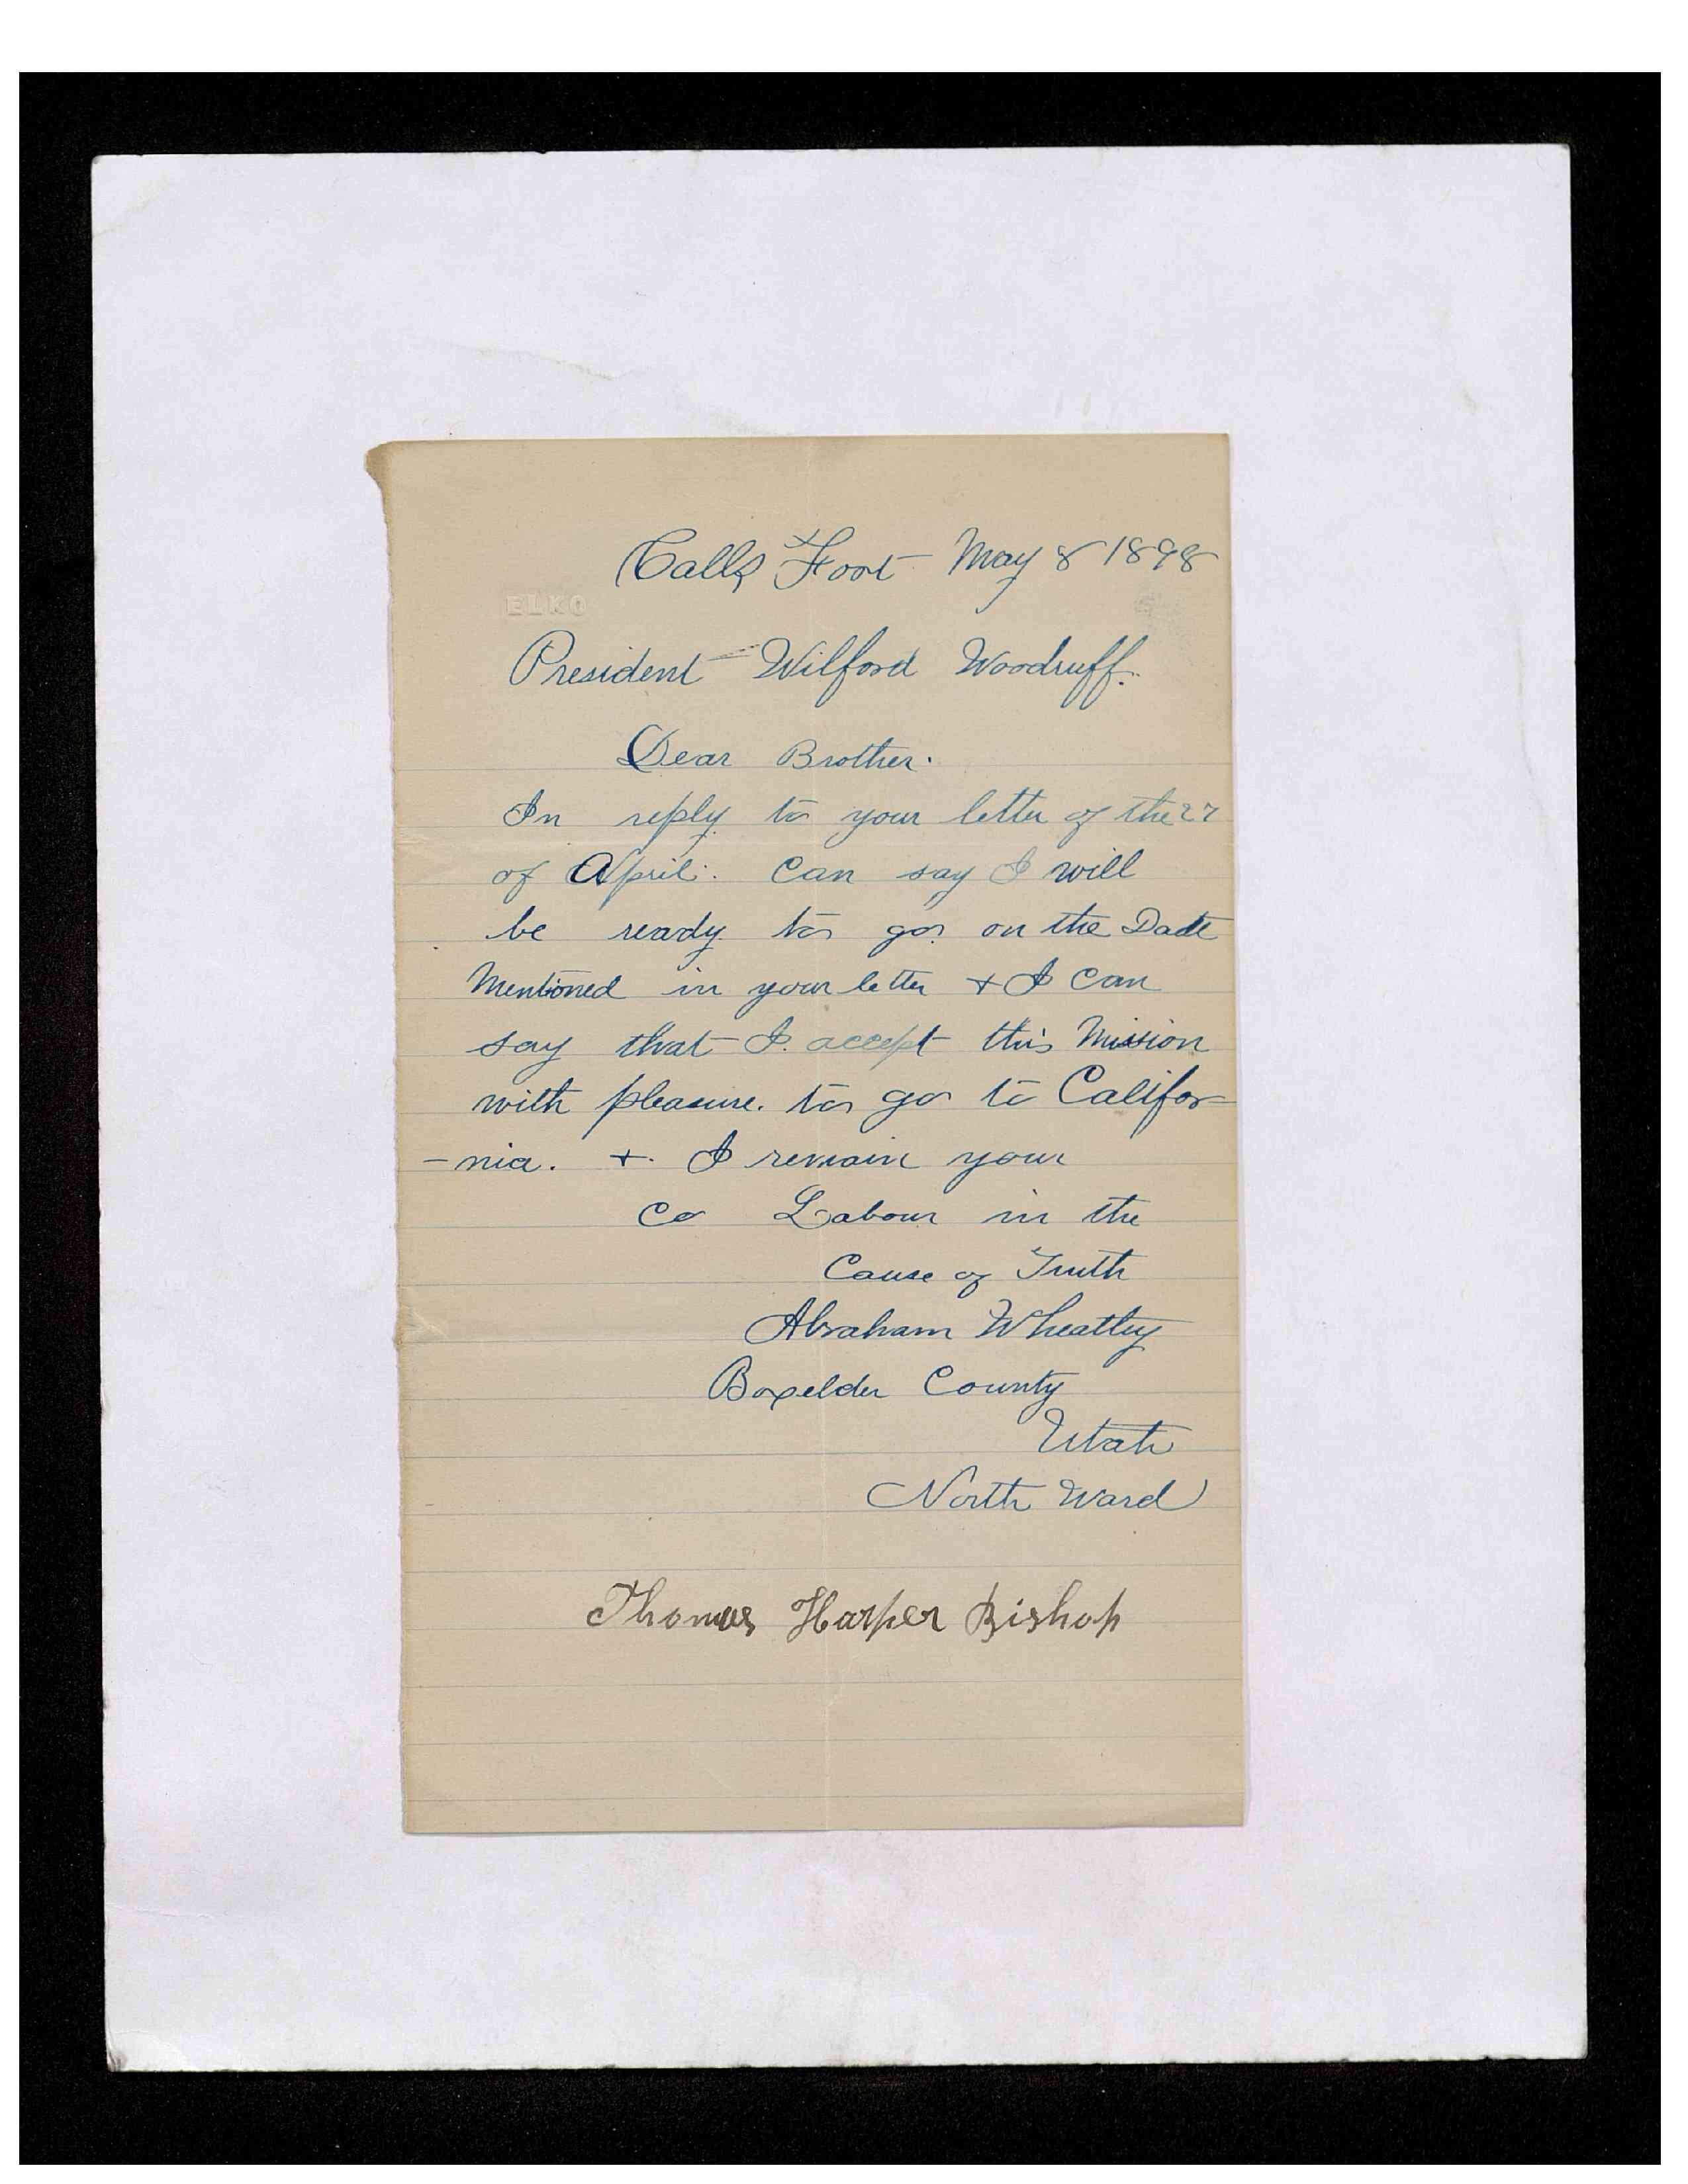 Calls Foort May 8 1898
ELKO
President Wilford Woodruff.
Dear Brother.
In reply to your letter of the 27
of April. Can say I will
be ready to go on the Date
Mentioned in your letter + I can
say that I. accept this Mission
with pleasure. to go to Califor-
-nia. +. I remain your
Co Labour in the
Cause of Truth
Abraham Wheatley
Boxelder County
Utah
North Ward
Thomas Harper Bishop